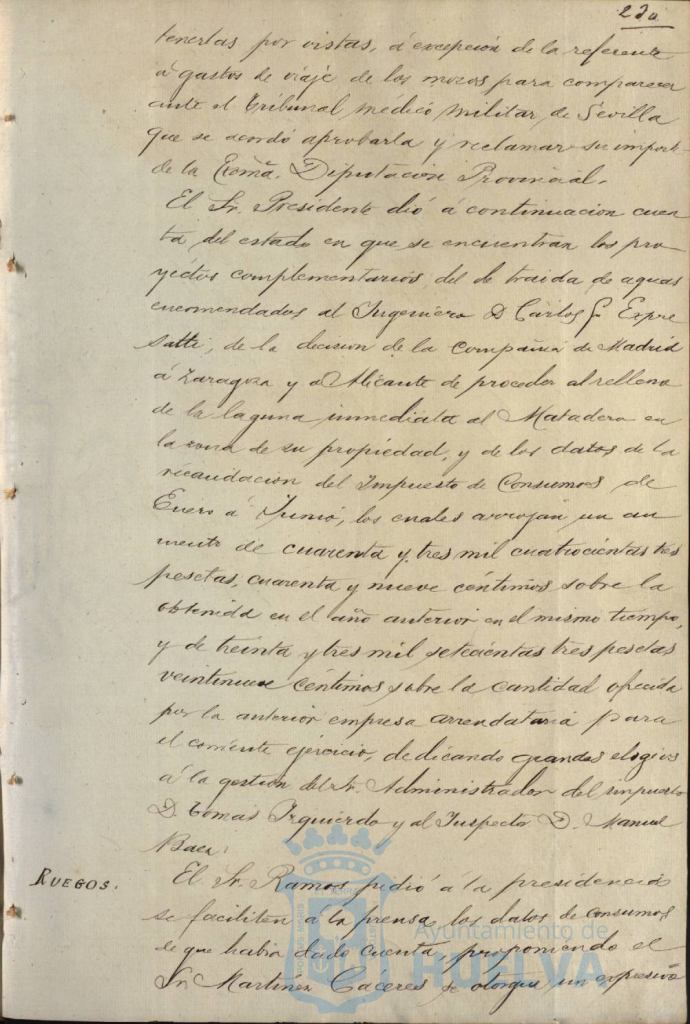 tenerlas por vistas, á excepción de la referente
á gastos de viaje de los mozos para comparecer
ante el Tribunal medico militar, de Sevilla
que se acordó aprobarla y reclamar su importe
de la Excmã. Diputacion Provincial.
El Sr. Presidente dió á continuacion cuen
ta, del estado en que se encuentran los pro
yectos complementarios, del de traida de aguas
encomendados al Ingeniero D Cárlos
satti, de la decision de la compañia de Madrid
á Zaragoza y á Alicante de proceder al relleno
de la laguna inmediata al Matadero en
la zona de su propiedad, y de los datos de la
recaudacion del Impuesto de Consumos, de
Enero á Junio, los cuales arrojan un au
mento de cuarenta y tres mil cuatrocientas tres
pesetas, cuarenta y nueve céntimos sobre la
obtenida en el año anterior en el mismo tiempo,
y de treinta y tres mil setecientas tres pesetas
veintinueve céntimos sobre la cantidad ofrecida
por la anterior empresa arrendataria para
el corriente ejercicio, dedicando grandes elogios
á la gestión del Sr. Administrador del impuesto
D. Tomás Izquierdo y al Inspector D. Manuel
Baez.
RUEGOS.
El Sr. Ramos pidió á la presidencia
se faciliten á la prensa, los datos de consumos
de que habia dado cuenta, proponiendo el
Sr. Martinez Cáceres se otorgue un expresivo
Ayuntamiento de
HUELVA